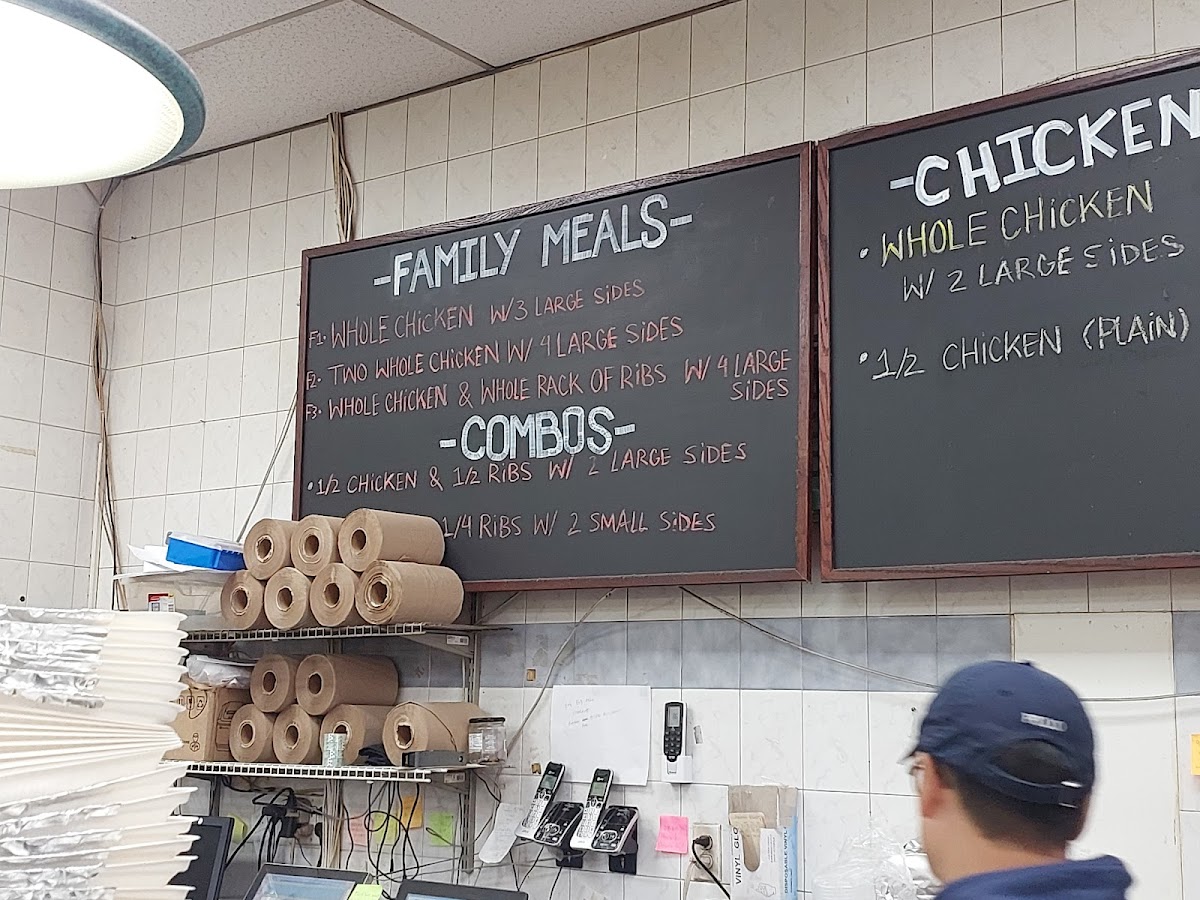 -FAMILY MEALS-
F1• WHOLE CHICKEN W/3 LARGE SIDES
F2• TWO WHOLE CHICKEN W/ 4 LARGE SIDES
F3• WHOLE CHICKEN & WHOLE RACK OF RIBS W/ 4 LARGE
SIDES
-COMBOS-
• 1/2 CHICKEN & 1/2 RIBS W/ 2 LARGE SIDES
1/4 RIBS W/ 2 SMALL SIDES
-CHICKEN
• WHOLE CHICKEN
W/ 2 LARGE SIDES
• 1/2 CHICKEN (PLAIN)
VINYL